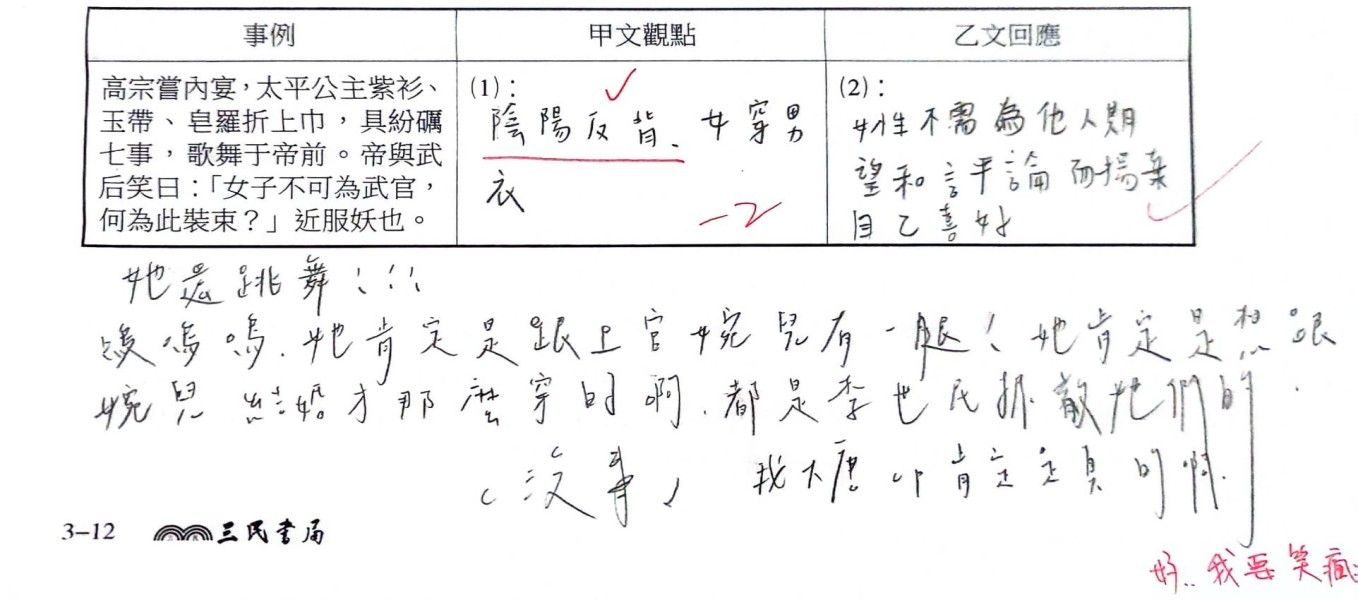 事例
甲文觀點
乙文回應
高宗嘗內宴，太平公主紫衫、
玉帶、皂羅折上巾，具紛礪
七事，歌舞于帝前。帝與武
后笑曰：「女子不可為武官，
何為此裝束？」近服妖也。
(1)：
陰陽反背、女穿男
衣
-2
(2)：
女性不需為他人期
望和評論而揚棄
自己喜好
她還跳舞！！！
嗚嗚.她肯定是跟上官婉兒有一腿！她肯定是想跟
婉兒結婚才那麼穿的啊.都是李世民拆散她們的.
（沒事）我大唐 肯定是真的啊.
3-12
三民書局
好..我要笑瘋